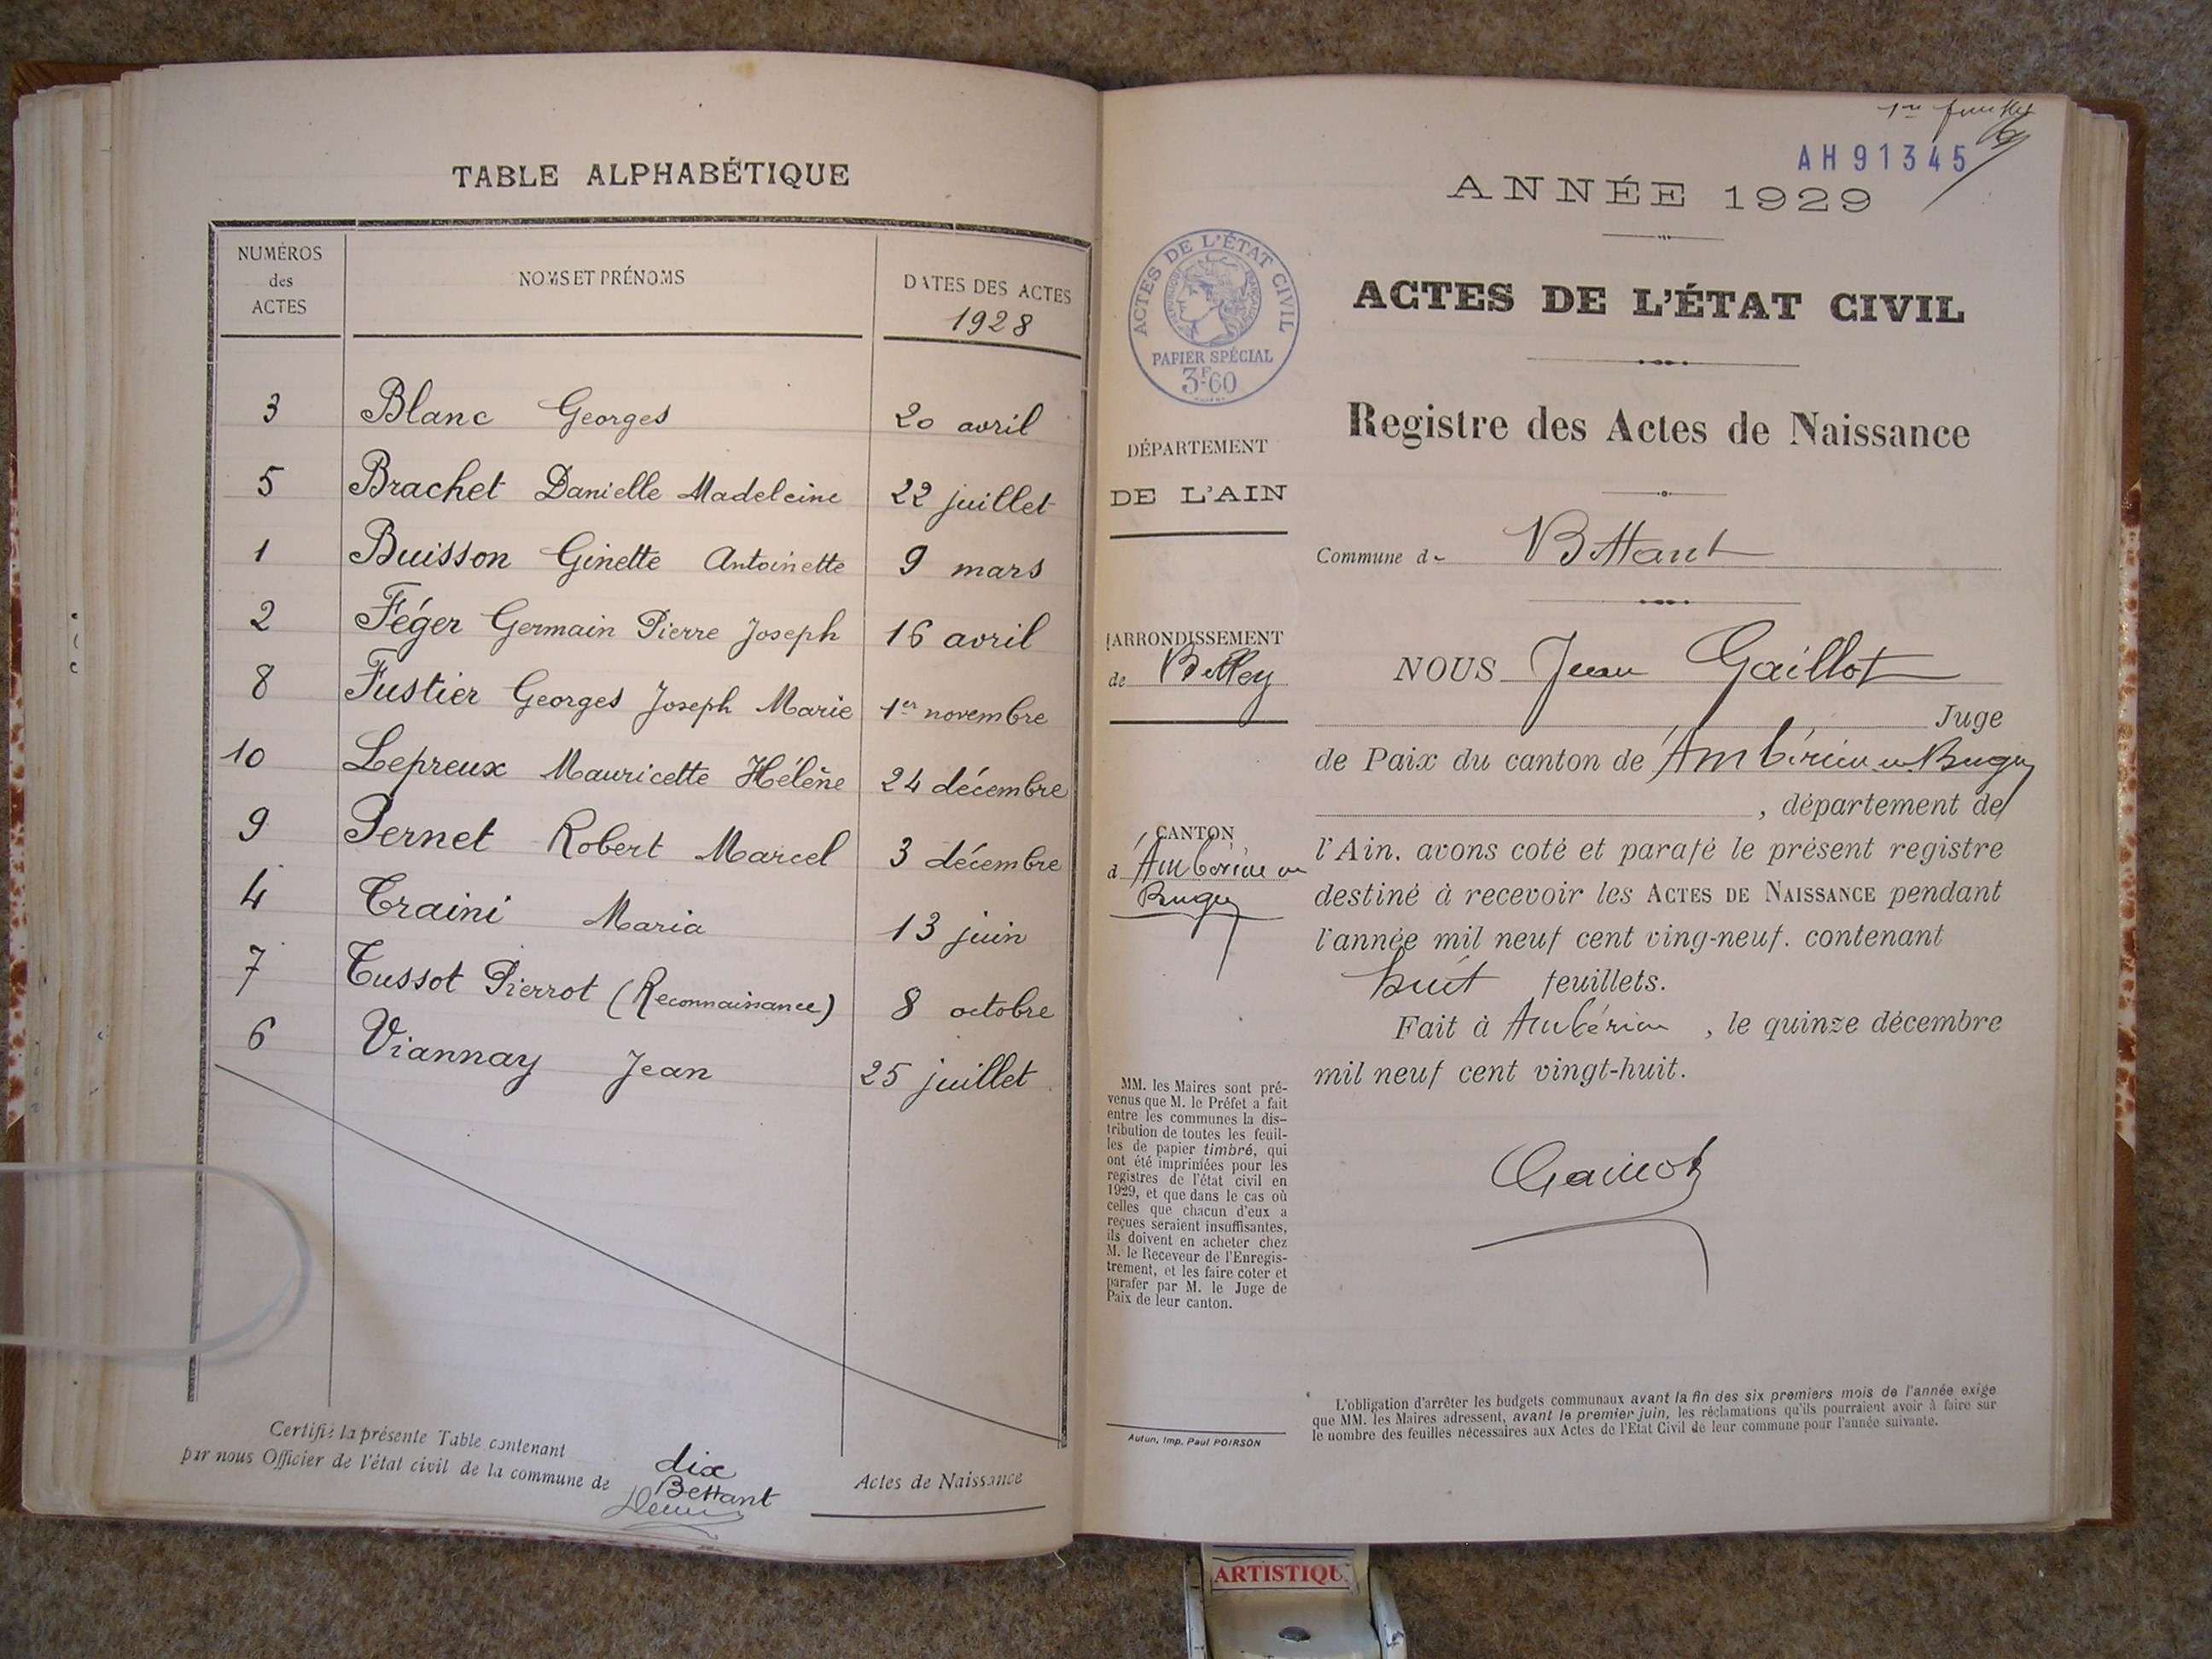 TABLE ALPHABÉTIQUE
NUMÉROS
des
ACTES
NOMS ET PRÉNOMS
DATES DES ACTES
1928
3 Blanc Georges 20 avril
5 Brachet Danielle Madeleine 22 juillet
1 Buisson Ginette Antoinette 9 mars
2 Féger Germain Pierre Joseph 16 avril
8 Fustier Georges Joseph Marie 1er novembre
10 Lepreux Mauricette Hélène 24 décembre
9 Pernet Robert Marcel 3 décembre
4 Traini Maria 13 juin
7 Tussot Pierrot (Reconnaissance) 8 octobre
6 Viannay Jean 25 juillet
Certifié la présente Table contenant dix Actes de Naissance
par nous Officier de l'état civil de la commune de Bettant
1er feuillet
AH91345
ANNÉE 1929
ACTES DE L'ÉTAT CIVIL
PAPIER SPÉCIAL
3F60
DÉPARTEMENT
DE L'AIN
ARRONDISSEMENT
de Belley
CANTON
d'Ambérieu en
Bugey
MM. les Maires sont pré-
venus que M. le Préfet a fait
entre les communes la dis-
tribution de toutes les feuil-
les de papier timbré, qui
ont été imprimées pour les
registres de l'état civil en
1929, et que dans le cas où
celles que chacun d'eux a
reçues seraient insuffisantes,
ils doivent en acheter chez
M. le Receveur de l'Enregis-
trement, et les faire coter et
parafer par M. le Juge de
Paix de leur canton.
Autun, Imp. Paul POIRSON
ACTES DE L'ÉTAT CIVIL
Registre des Actes de Naissance
Commune de Bettant
NOUS Jean Gaillot
Juge
de Paix du canton de Ambérieu en Bugey
, département de
l'Ain, avons coté et parafé le présent registre
destiné à recevoir les ACTES DE NAISSANCE pendant
l'année mil neuf cent ving-neuf. contenant
huit feuillets.
Fait à Ambérieu , le quinze décembre
mil neuf cent vingt-huit.
Gaillot
L'obligation d'arrêter les budgets communaux avant la fin des six premiers mois de l'année exige
que MM. les Maires adressent, avant le premier juin, les réclamations qu'ils pourraient avoir à faire sur
le nombre des feuilles nécessaires aux Actes de l'Etat Civil de leur commune pour l'année suivante.
ARTISTIQU